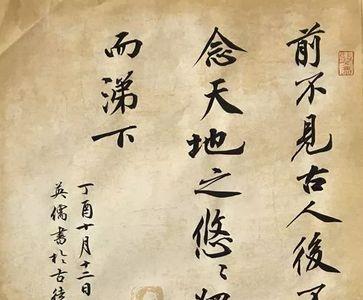 前不見古人後
念天地之悠〻
而涕下
丁酉十月十二日
英儒書於古